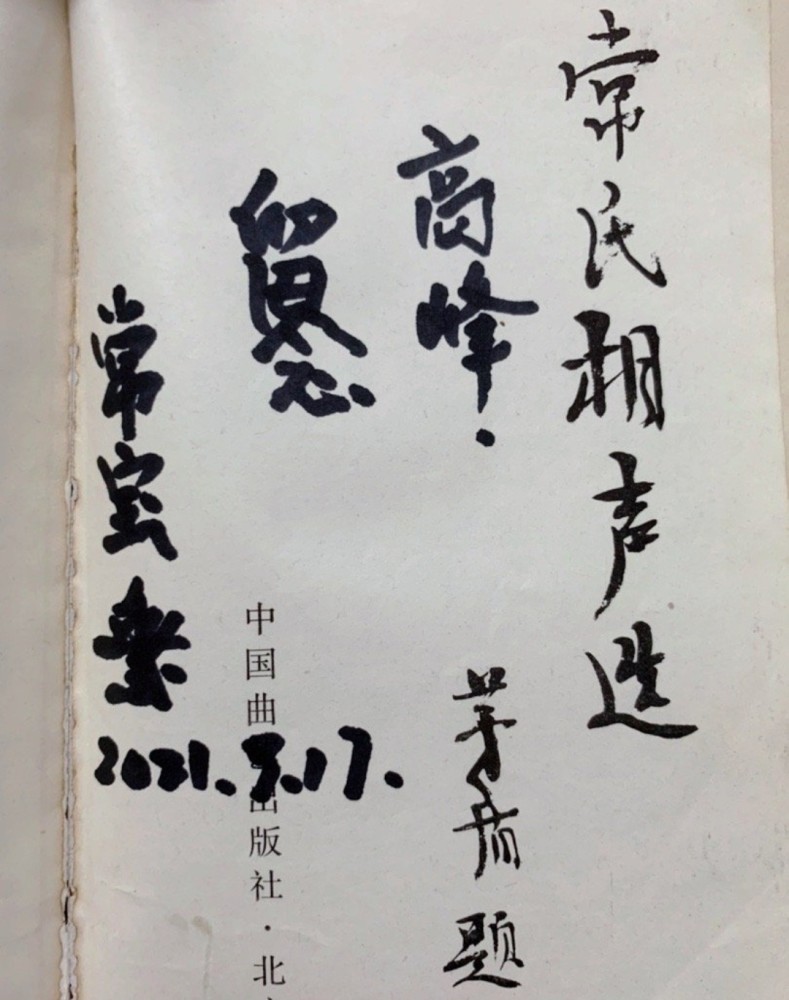 常氏相声选
茅盾题
高峰.
留念
中国曲出版社·北
常宝
2021.3.17.